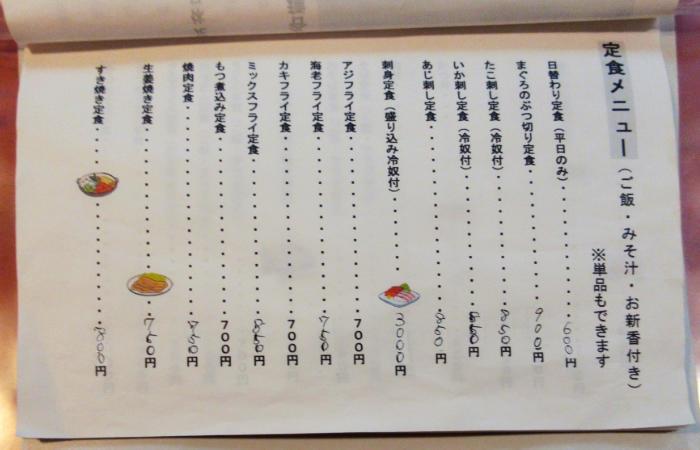 定食メニュー（ご飯・みそ汁・お新香付き）
※単品もできます
日替わり定食（平日のみ）・・・・・・・・・・600円
まぐろのぶつ切り定食・・・・・・・・・・900円
たこ刺し定食（冷奴付）・・・・・・・・・・850円
いか刺し定食（冷奴付）・・・・・・・・・・850円
あじ刺し定食・・・・・・・・・・850円
刺身定食（盛り込み冷奴付）・・・・・・3000円
アジフライ定食・・・・・・・・・・700円
海老フライ定食・・・・・・・・・・750円
カキフライ定食・・・・・・・・・・700円
ミックスフライ定食・・・・・・・・・・850円
もつ煮込み定食・・・・・・・・・・700円
焼肉定食・・・・・・・・・・750円
生姜焼き定食・・・・・・・・・・750円
すき焼き定食・・・・・・・・・・円